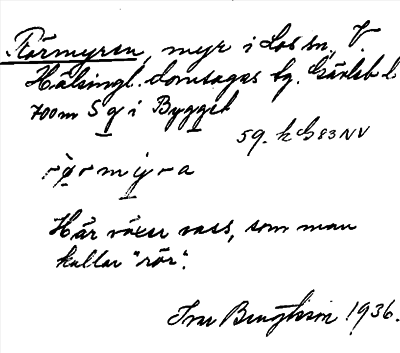 Rörmyren, myr i Los sn, V.
Hälsingl. domsagas tg. Gävleb. l.
700 m S g i Bygget
59. h G 83 NV
rø̀rmyra
Här växer vass, som man
kallar "rör".
Ivar Bengtsson 1936.